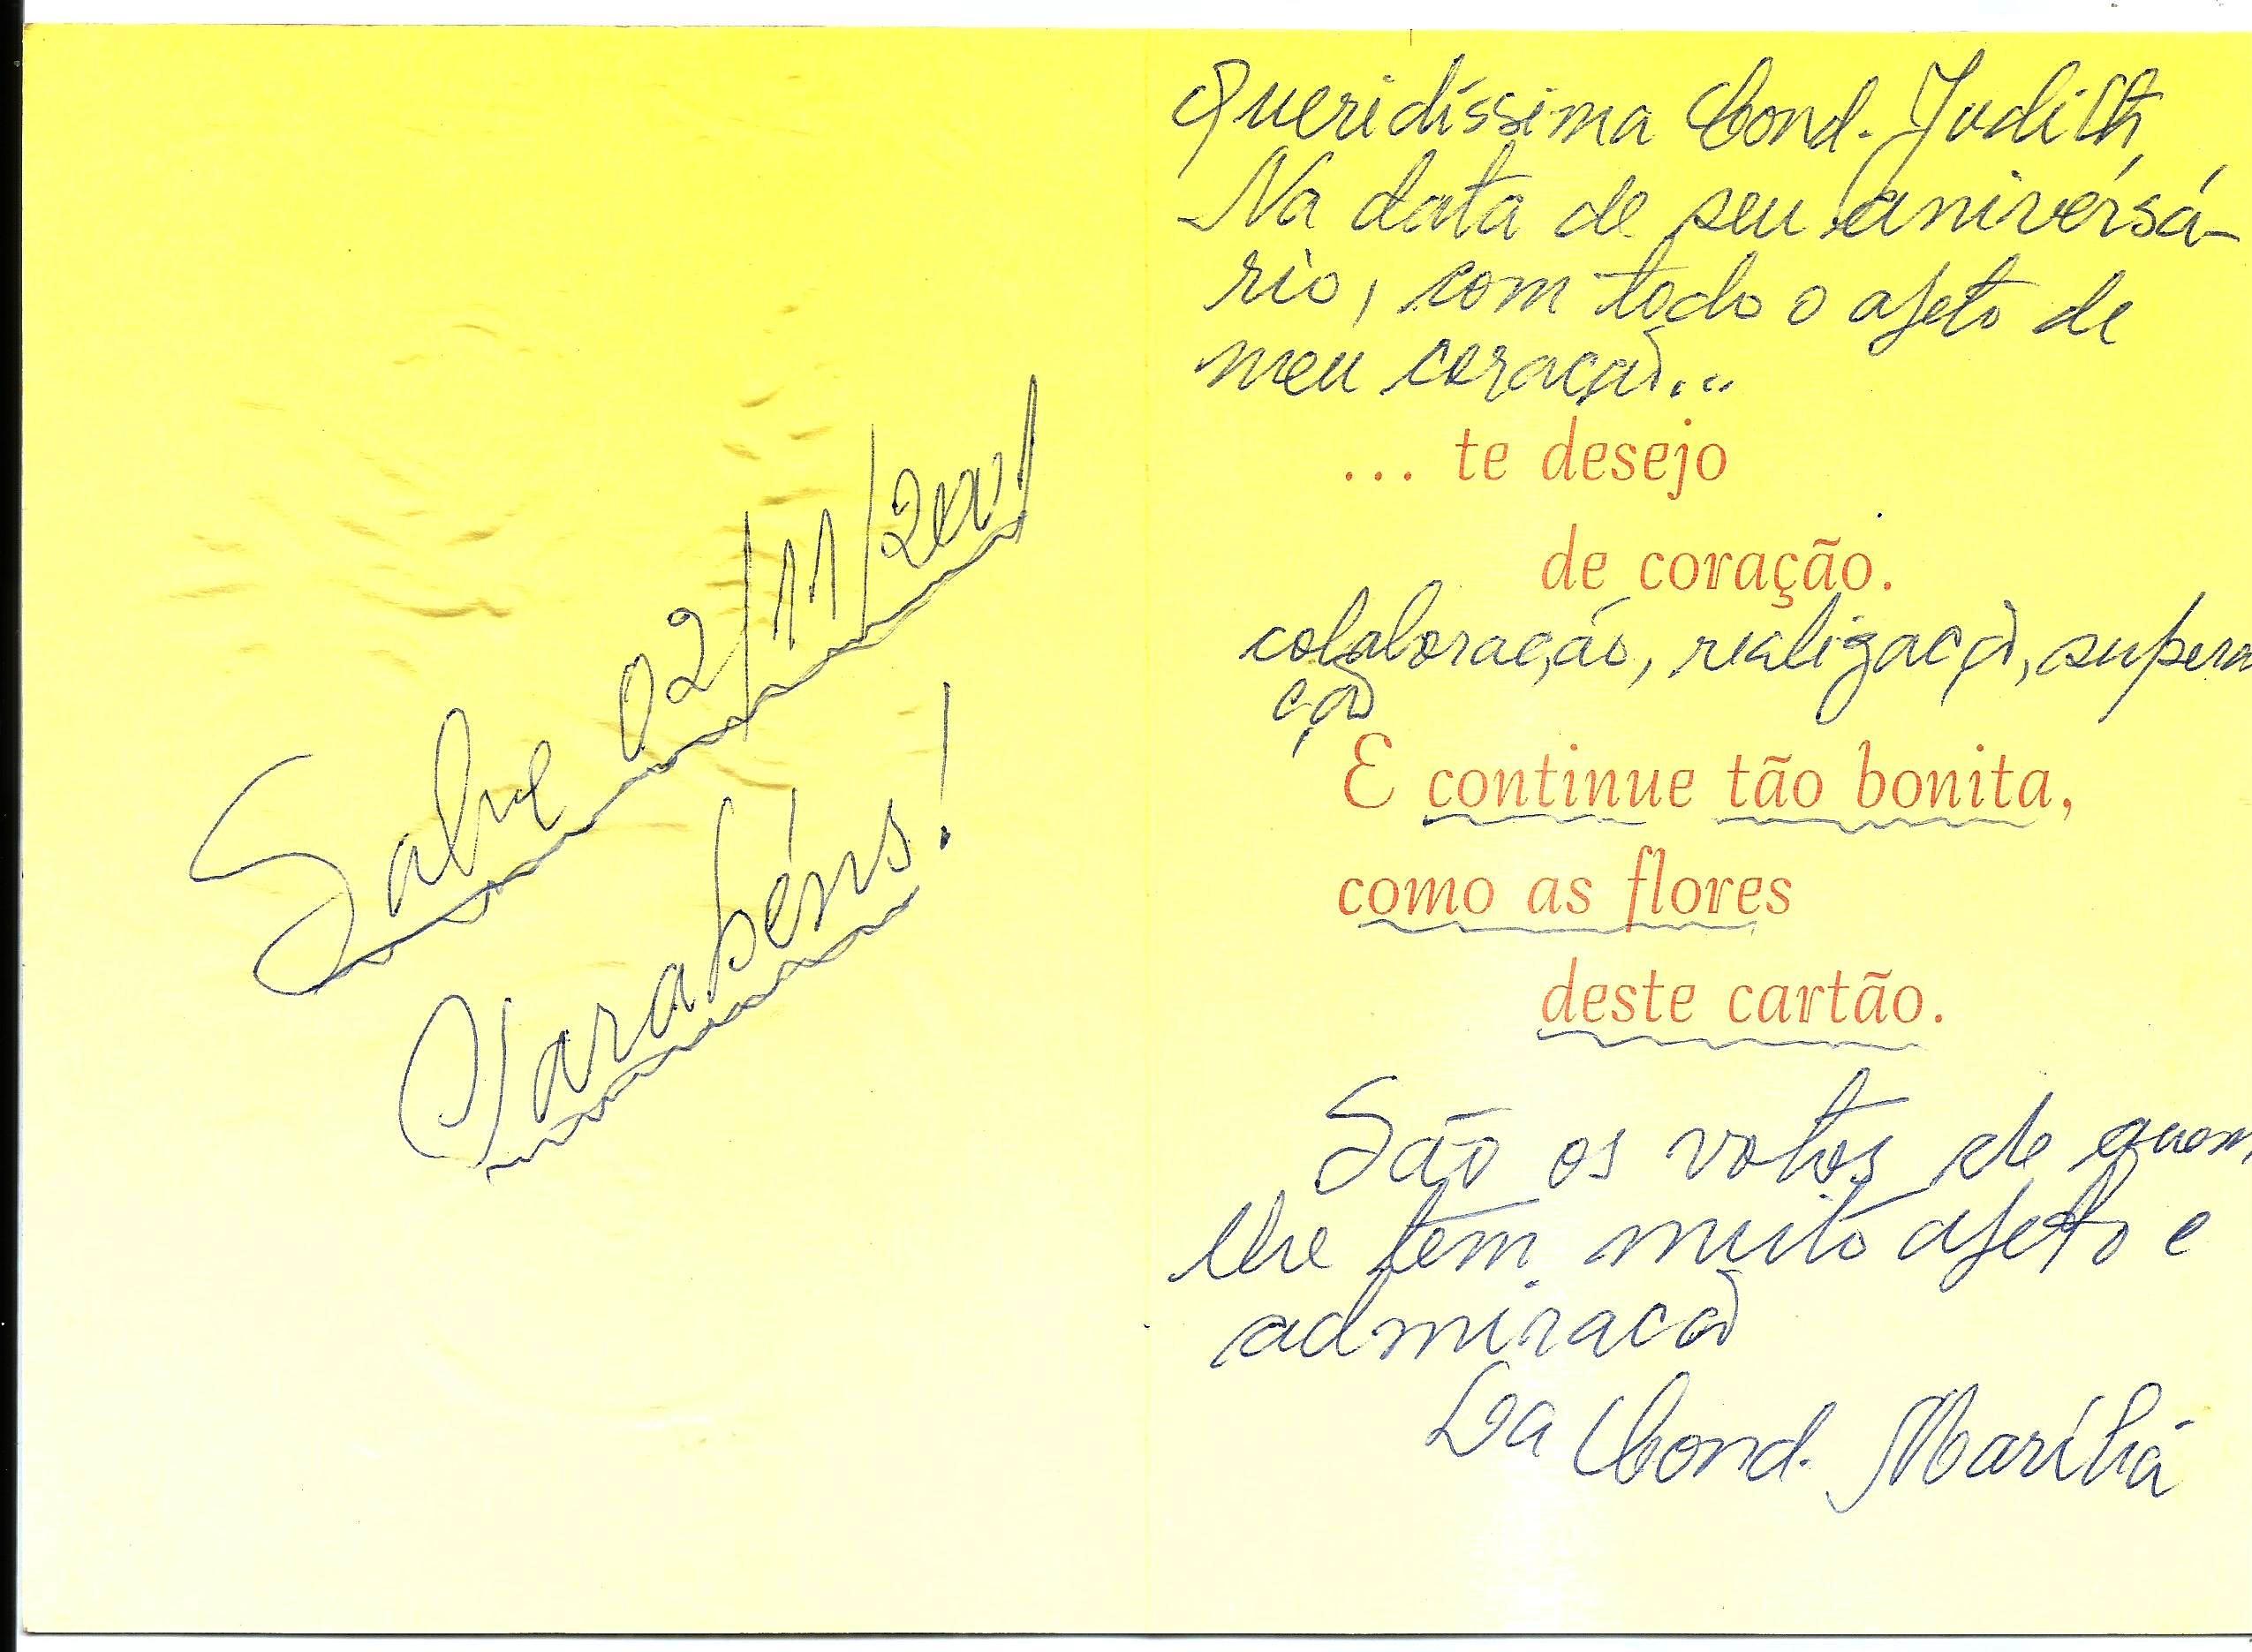 Salve 02/11/2001
Parabéns!
Queridíssima Cond. Judith,
Na data de seu aniversá-
rio, com todo o afeto de
meu coração...
... te desejo
de coração.
colaboração, realização, supera
ção
E continue tão bonita,
como as flores
deste cartão.
São os votos de quem
lhe tem muito afeto e
admiração
Da Cond. Marília